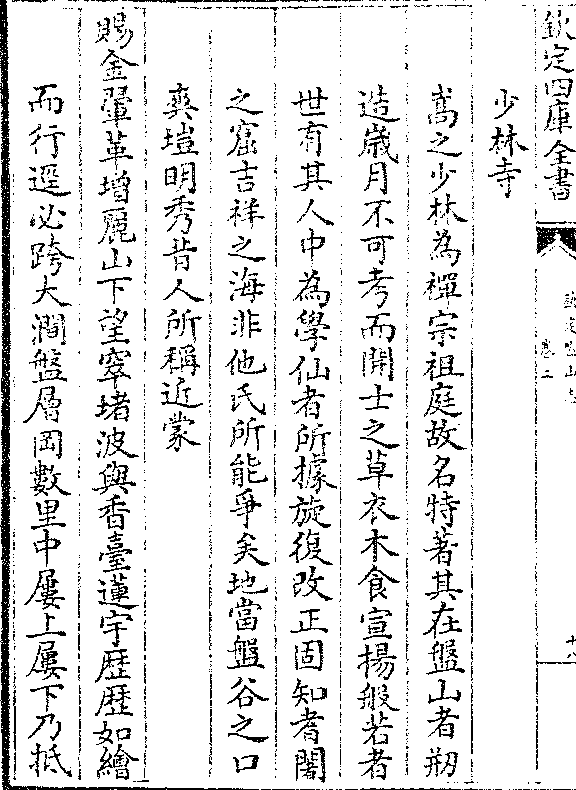 欽定四庫全書
欽定盤山志
卷二
十八
少林寺
嵩之少林為禪宗祖庭故名特著其在盤山者剏
造歲月不可考而開士之草衣木食宣揚般若者
世有其人中為學仙者所據旋復改正固知耆闍
之窟吉祥之海非他氏所能爭矣地當盤谷之口
爽塏明秀昔人所稱近蒙
賜金翬革增麗山下望窣堵波與香臺蓮宇歴歴如繪
而行逕必跨大澗盤層岡數里中屢上屢下乃抵